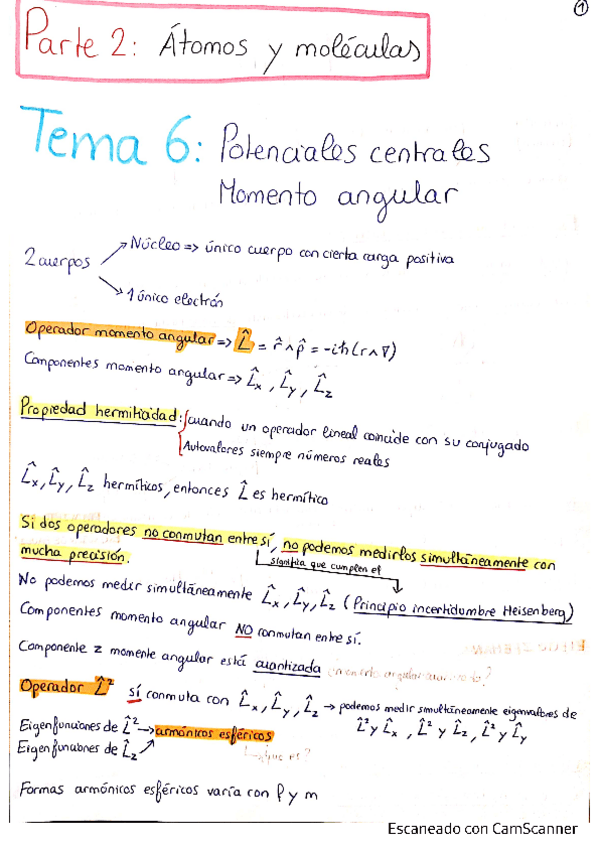 1
Parte 2: Átomos y moléculas
Tema 6: Potenciales centrales
Momento angular
2 cuerpos
Núcleo => único cuerpo con cierta carga positiva
1 único electrón
Operador momento angular => L̂ = r̂ ∧ p̂ = -iħ(r ∧ ∇)
Componentes momento angular => L̂x, L̂y, L̂z
Propiedad hermiticidad: cuando un operador lineal coincide con su conjugado
Autovalores siempre números reales
L̂x, L̂y, L̂z hermíticos, entonces L̂ es hermítico
Si dos operadores no conmutan entre sí, no podemos medirlos simultáneamente con
mucha precisión.
significa que cumplen el
No podemos medir simultáneamente L̂x, L̂y, L̂z (Principio incertidumbre Heisenberg)
Componentes momento angular NO conmutan entre sí.
Componente z momento angular está cuantizada
Operador L̂² sí conmuta con L̂x, L̂y, L̂z → podemos medir simultáneamente eigenvalores de
L̂² y L̂x, L̂² y L̂z, L̂² y L̂y
Eigenfunciones de L̂² → armónicos esféricos
Eigenfunciones de L̂z
¿que es?
Formas armónicos esféricos varía con l y m
Escaneado con CamScanner